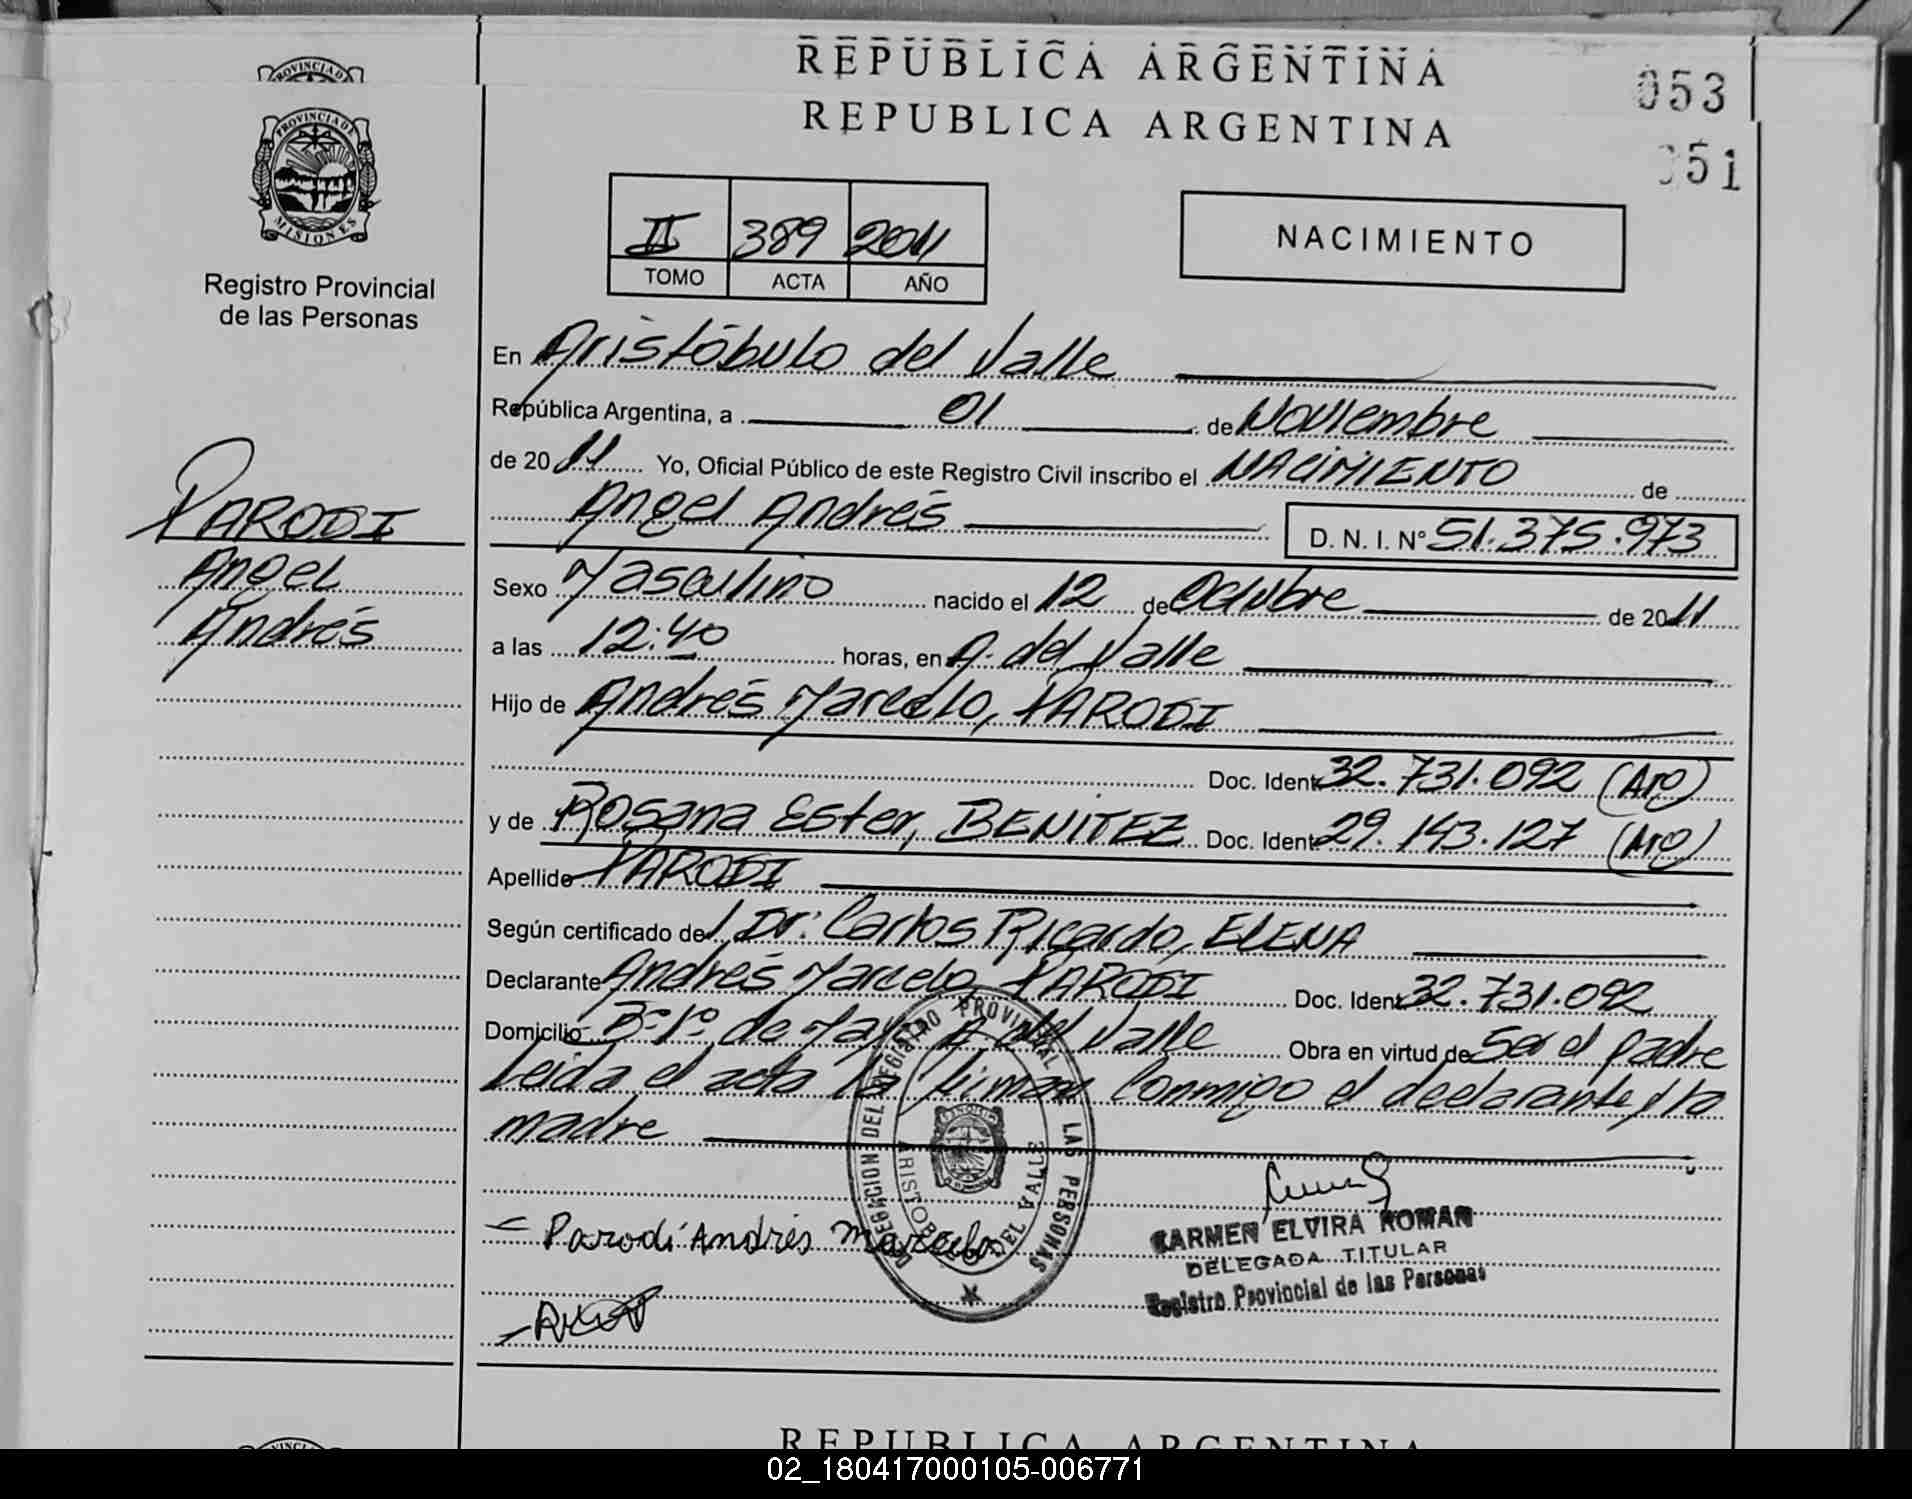 REPUBLICA ARGENTINA
053
REPUBLICA ARGENTINA
051
PROVINCIA DE
MISIONES
Registro Provincial
de las Personas
II 389 2011
TOMO ACTA AÑO
NACIMIENTO
En Aristóbulo del Valle
República Argentina, a 01 de Noviembre
de 2011 Yo, Oficial Público de este Registro Civil inscribo el NACIMIENTO de
Angel Andrés D. N. I. Nº 51.375.973
PARODI
Angel
Andrés
Sexo Masculino nacido el 12 de Octubre de 2011
a las 12:40 horas, en A. del Valle
Hijo de Andrés Marcelo, PARODI
Doc. Ident 32.731.092
y de Rosana Ester, BENITEZ Doc. Ident 29.143.127
Apellido PARODI
Según certificado del Dr: Carlos Ricardo, ELENA
Declarante Andrés Marcelo, PARODI Doc. Ident 32.731.092
Domicilio Bº 1º de May A del Valle Obra en virtud de Ser el padre
Leida el acta la firman conmigo el declarante y la
madre
DELEGACION DEL REGISTRO PROVINCIAL LAS PERSONAS
ARISTOBULO DEL VALLE
Parodi Andrés Marcelo
CARMEN ELVIRA ROMAN
DELEGADA TITULAR
Registro Provincial de las Personas
REPUBLICA ARGENTINA
02_180417000105-006771